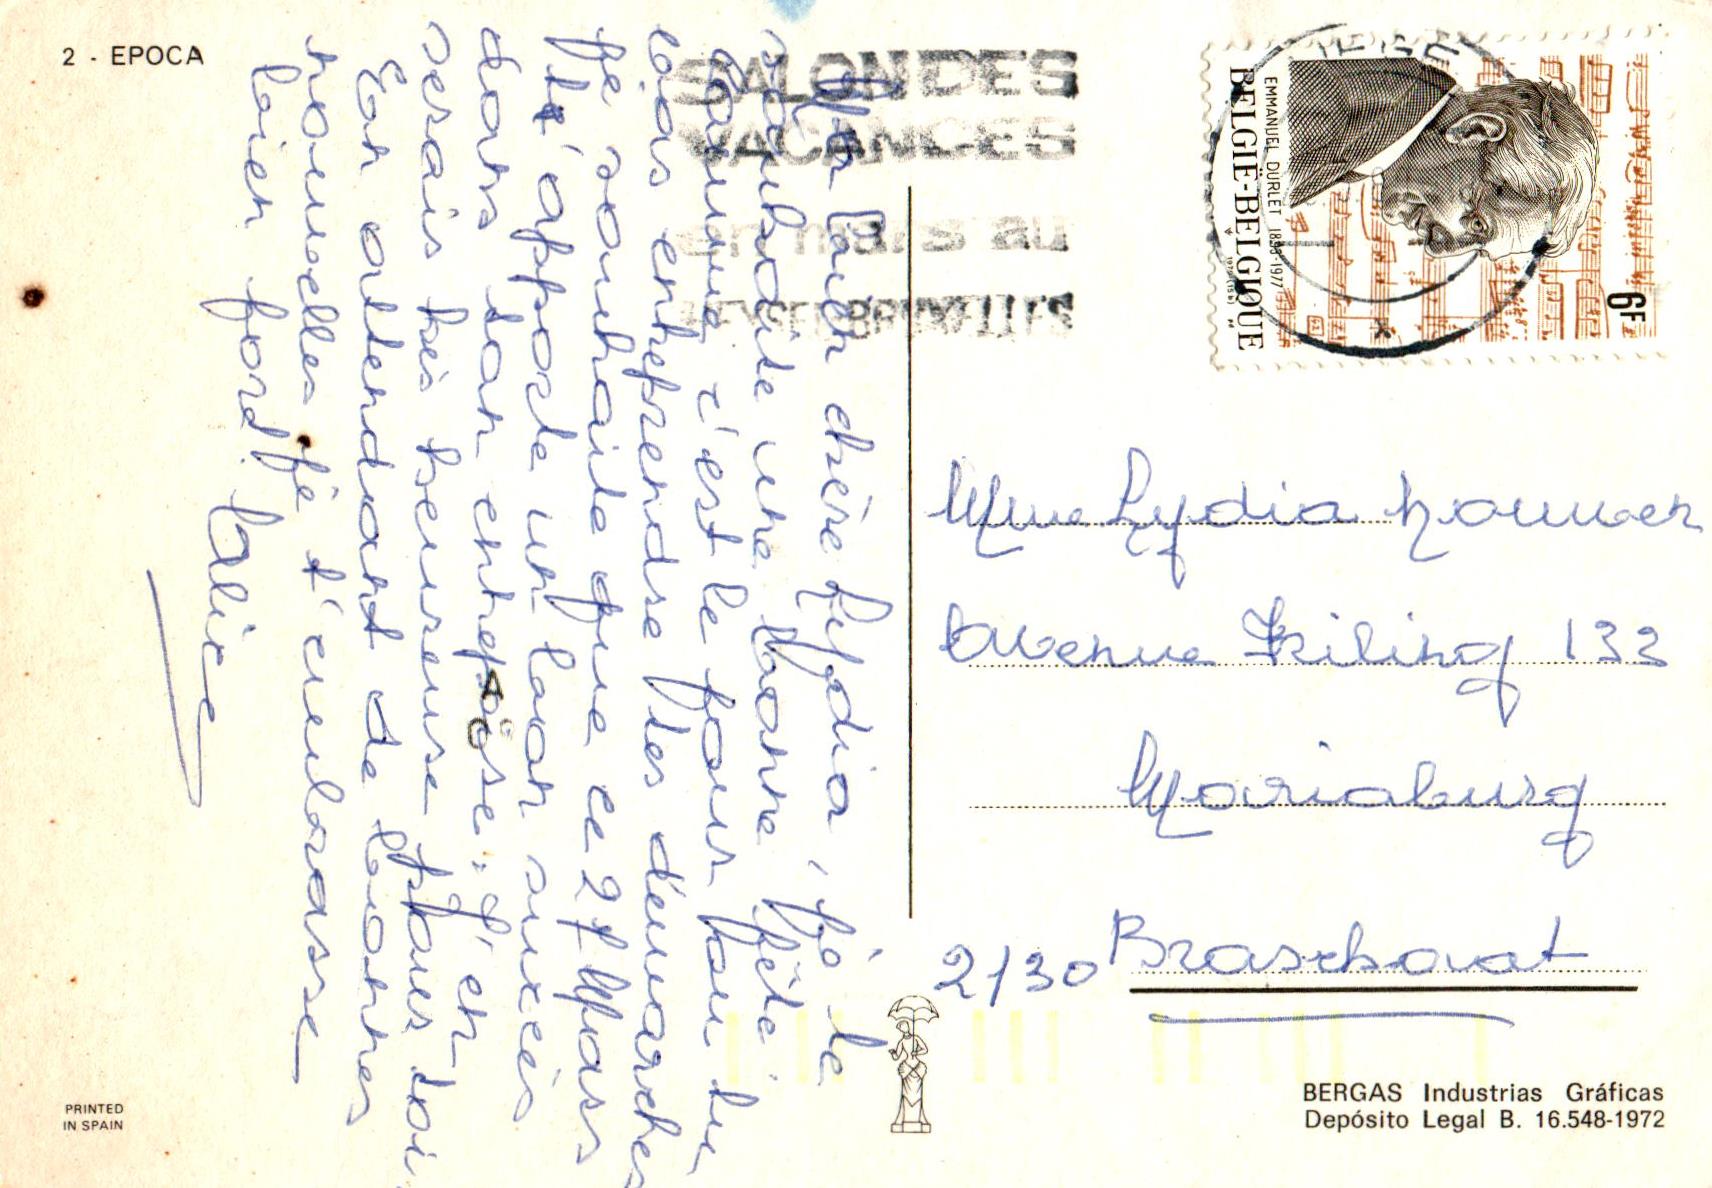 2 - EPOCA
SALON DES
VACANCES
en mars au
HEYSEL BRUXELLES
BELGIË-BELGIQUE
EMMANUEL DURLET 1893-1977
6F
Ma bien chère Lydia, je te
souhaite une bonne fête
comme c'est le jour ou tu
vas entreprendre tes démarches
je souhaite que ce 27 Mars
t'apporte un bon succès
dans ton entreprise. J'en
serais très heureuse pour toi
En attendant de bonnes
nouvelles je t'embrasse
bien fort. Alice
Mme Lydia
Avenue 133
Mariaburg
2130 Braschaat
PRINTED
IN SPAIN
BERGAS Industrias Gráficas
Depósito Legal B. 16.548-1972